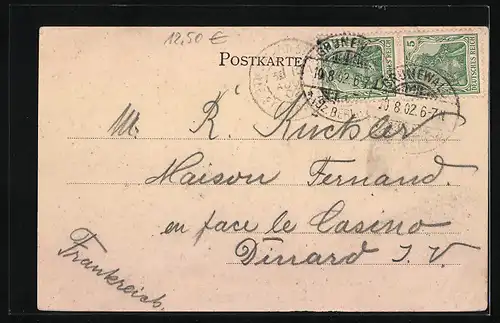 12,50 €
POSTKARTE
5
DEUTSCHES REICH
GRUNEWALD
10.8.02.6-7
BERLIN
GRUNEWALD
10.8.02.6-7
M. R. Kuckler
Maison Fernand
en face le Casino
Dinard I. V.
Frankreich.